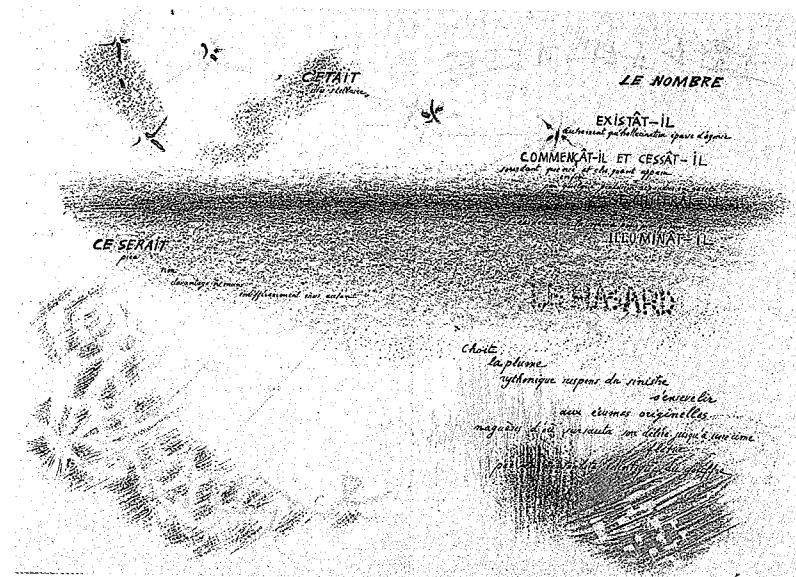 C'ÉTAIT
issu stellaire
LE NOMBRE
EXISTÂT-IL
autrement qu'hallucination éparse d'agonie
COMMENÇÂT-IL ET CESSÂT-IL
sourdant que nié et clos quand apparu
ILLUMINÂT-IL
CE SERAIT
pire
non
davantage ni moins
indifféremment mais autant
LE HASARD
Choit
la plume
rythmique suspens du sinistre
s'ensevelir
aux écumes originelles
naguères d'où sursauta son délire jusqu'à une cime
flétrie